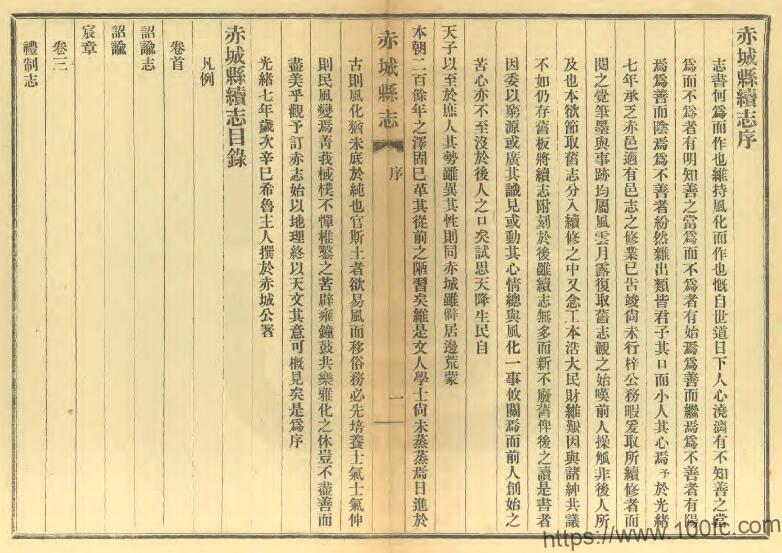 赤城縣續志序
志書何爲而作也維持風化而作也慨自世道日下人心澆漓有不知善之當
爲而不爲者有明知善之當爲而不爲者有始焉爲善而繼焉爲不善者有陽
焉爲善而陰焉爲不善者紛然雜出類皆君子其口而小人其心焉予於光緒
七年承乏赤邑適有邑志之修業已告竣尙未行梓公務暇爰取所續修者而
閱之覺筆墨與事跡均屬風雲月露復取舊志觀之始嘆前人操觚非後人所
及也本欲節取舊志分入續修之中又念工本浩大民財維艱因與諸紳共議
不如仍存舊板將續志附刻於後雖續志無多而新不廢舊俾後之讀是書者
因委以窮源或廣其識見或動其心情總與風化一事攸關焉而前人創始之
苦心亦不至沒於後人之口矣試思天降生民自
天子以至於庶人其勢雖異其性則同赤城雖僻居邊荒蒙
本朝二百餘年之澤固已革其從前之陋習矣維是文人學士尙未蒸蒸焉日進於
赤城縣志
序
一
古則風化猶未底於純也官斯土者欲易風而移俗務必先培養士氣士氣伸
則民風變焉菁莪棫樸不憚椎鑿之苦辟雍鐘鼓共樂雅化之休豈不盡善而
盡美乎觀予訂赤志始以地理終以天文其意可槪見矣是爲序
光緒七年歲次辛巳希魯主人撰於赤城公署
凡例
赤城縣續志目錄
卷首
詔諭志
詔諭
宸章
卷三
禮制志
https://www.100fc.com